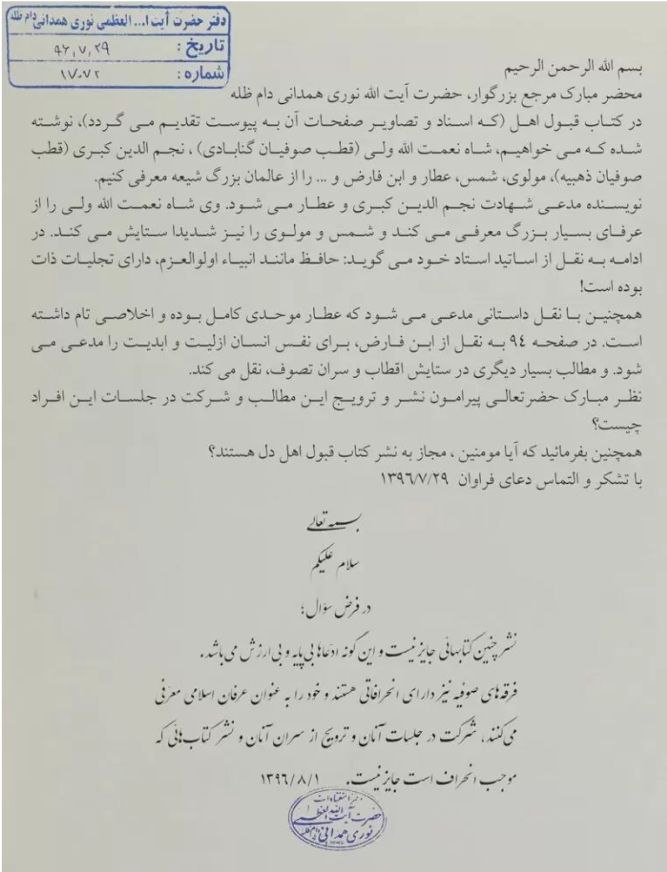 دفتر حضرت آیت ا... العظمی نوری همدانی دام ظله
تاریخ : ۹۶,۷,۲۹
شماره : ۱۷۰۷۲
بسم الله الرحمن الرحیم
محضر مبارک مرجع بزرگوار، حضرت آیت الله نوری همدانی دام ظله
در کتاب قبول اهل (که اسناد و تصاویر صفحات آن به پیوست تقدیم می گردد)، نوشته
شده که می خواهیم، شاه نعمت الله ولی (قطب صوفیان گنابادی) ، نجم الدین کبری (قطب
صوفیان ذهبیه)، مولوی، شمس، عطار و ابن فارض و ... را از عالمان بزرگ شیعه معرفی کنیم.
نویسنده مدعی شهادت نجم الدین کبری و عطار می شود. وی شاه نعمت الله ولی را از
عرفای بسیار بزرگ معرفی می کند و شمس و مولوی را نیز شدیدا ستایش می کند. در
ادامه به نقل از اساتید استاد خود می گوید: حافظ مانند انبیاء اولوالعزم، دارای تجلیات ذات
بوده است!
همچنین با نقل داستانی مدعی می شود که عطار موحدی کامل بوده و اخلاصی تام داشته
است. در صفحه ۹٤ به نقل از ابن فارض، برای نفس انسان ازلیت و ابدیت را مدعی می
شود. و مطالب بسیار دیگری در ستایش اقطاب و سران تصوف، نقل می کند.
نظر مبارک حضرتعالی پیرامون نشر و ترویج این مطالب و شرکت در جلسات این افراد
چیست؟
همچنین بفرمائید که آیا مومنین ، مجاز به نشر کتاب قبول اهل دل هستند؟
با تشکر و التماس دعای فراوان ۱۳۹٦/۷/۲۹
بسمه تعالی
سلام علیکم
در فرض سؤال ؛
نشر چنین کتابهائی جایز نیست و این گونه ادّعاها بی پایه و بی ارزش می باشد.
فرقه های صوفیه نیز دارای انحرافاتی هستند و خود را به عنوان عرفان اسلامی معرّفی
می کنند , شرکت در جلسات آنان و ترویج از سران آنان و نشر کتاب هائی که
موجب انحراف است جایز نیست. ۱۳۹٦/۸/۱
دفتر استفتاءات
حضرت آیت الله العظمی
نوری همدانی